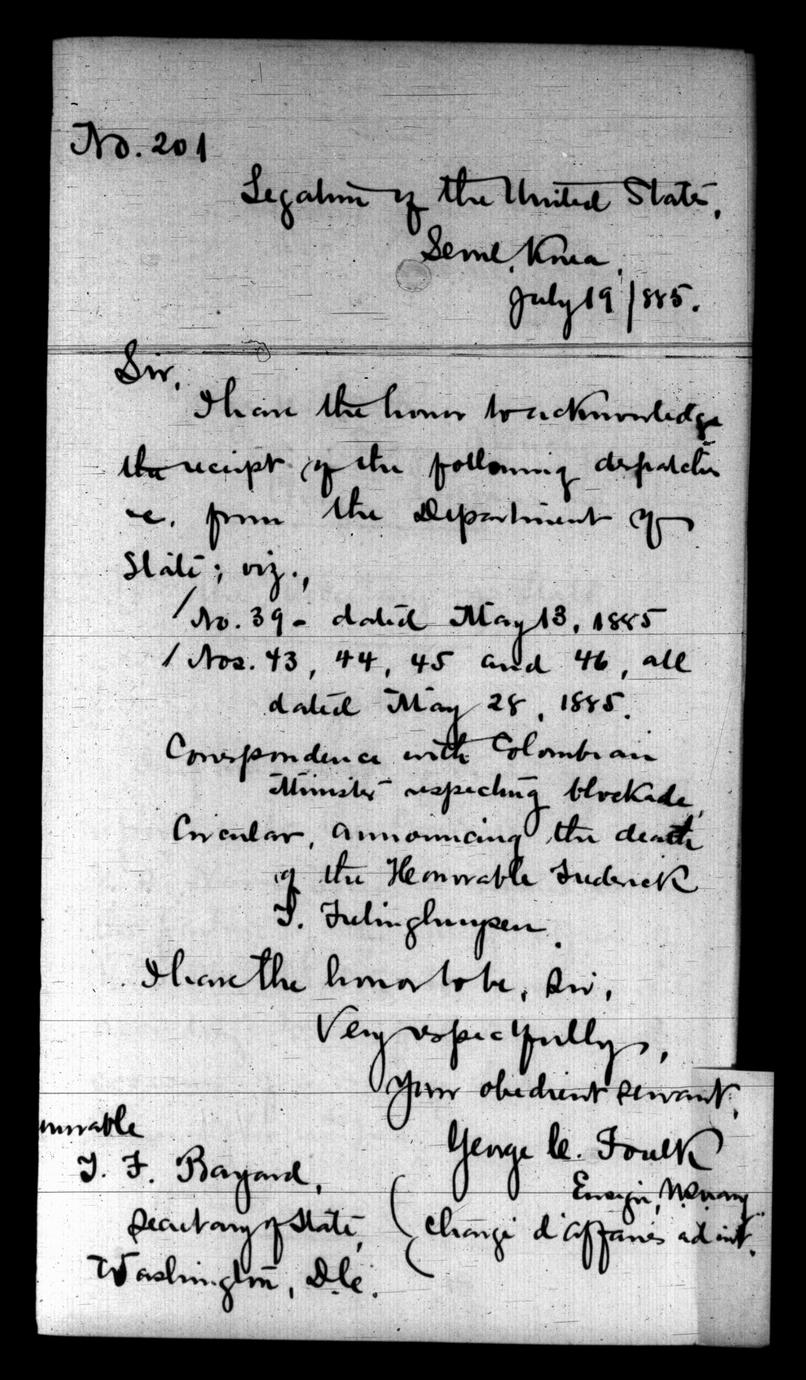 No. 201
Legation of the United States,
Seoul, Korea,
July 19/885.
Sir,
I have the honor to acknowledge
the receipt of the following despatches
&c. from the Department of
State; viz.,
/ No. 39 - dated May 13, 1885
/ Nos. 43, 44, 45 and 46, all
dated May 28, 1885.
Correspondence with Colombian
Minister respecting blockade,
Circular, announcing the death
of the Honorable Frederick
T. Frelinghuysen.
I have the honor to be, Sir,
Very respectfully,
Your obedient servant,
norable
George C. Foulk
T. F. Bayard,
Ensign, U.S. Navy
Secretary of State,
Chargé d'Affaires ad int.
Washington, D.C.